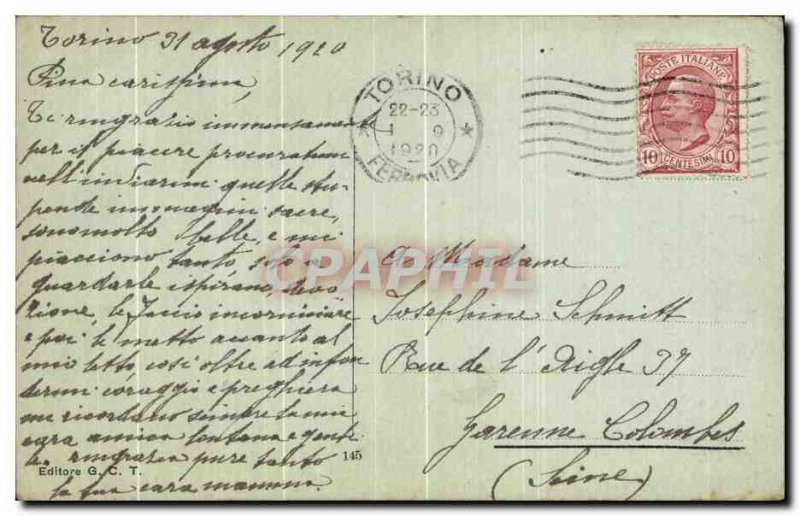 Torino 31 agosto 1920
Pina carissima,
Ti ringrazio immensamente
per il piacere procuratomi
nell'inviarmi quelle stu-
pende immagini sacre,
sono molto belle, e mi
piacciono tanto, solo a
guardarle ispirano, devo
zione, le faccio incorniciare
e poi le metto accanto al
mio letto così oltre ad infon
dermi coraggio e preghiera
mi ricordano sempre la mia
cara amica lontana e genti
le. ringrazia pure tanto
la tua cara mamma.
Editore G. C. T.
145
TORINO
22-23
1 9
1920
FERROVIA
POSTE ITALIANE
10 CENTESIMI 10
CPAPHIL
a Madame
Josephine Schmitt
Rue de l'Aigle 37
Garenne Colombes
(Seine)